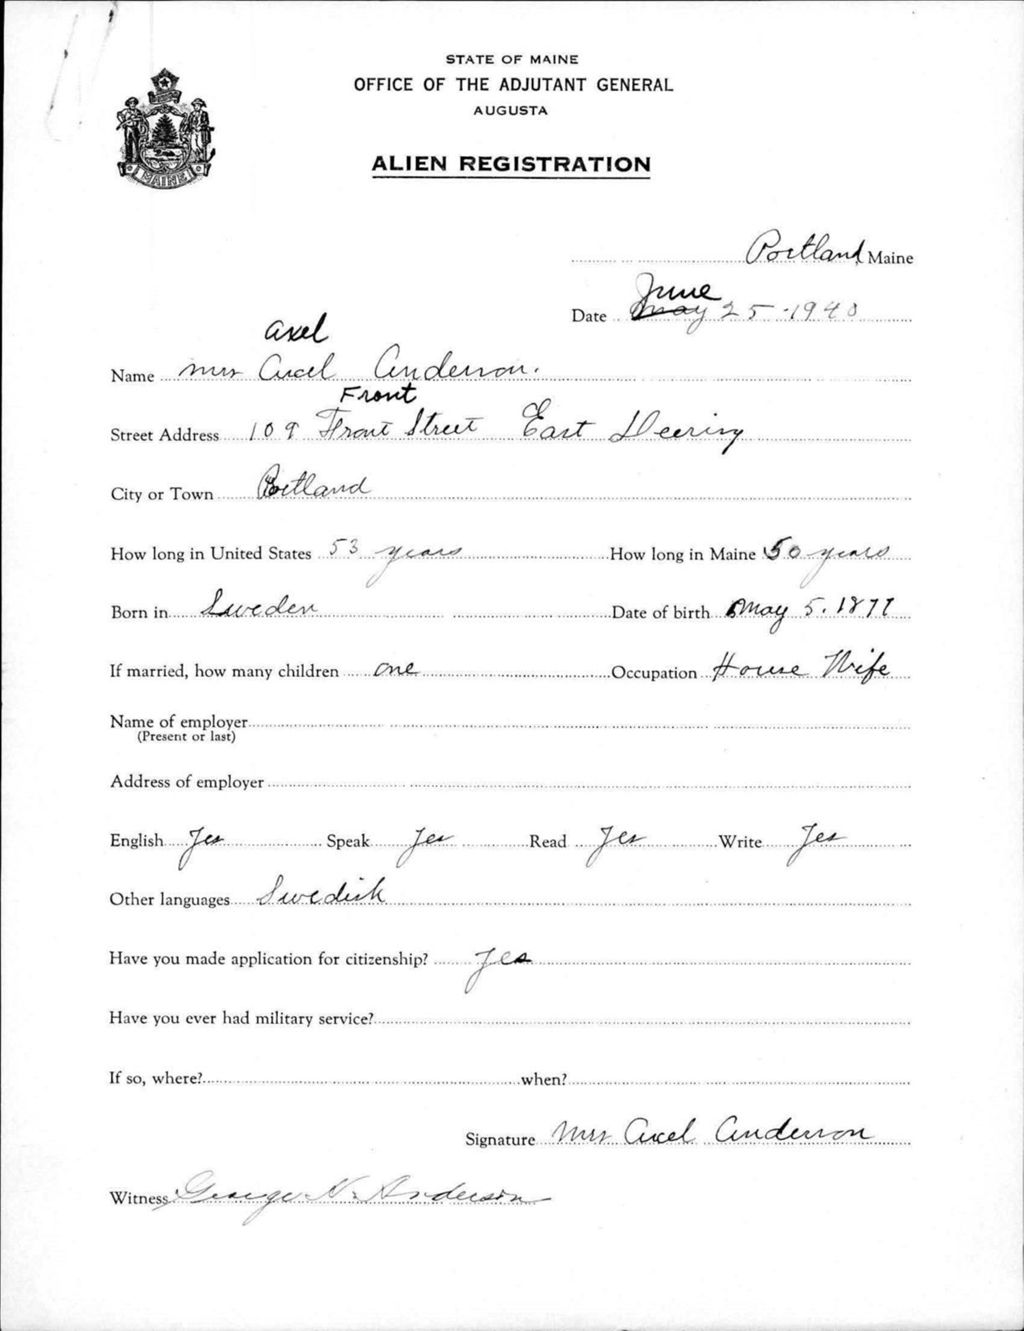 STATE OF MAINE
OFFICE OF THE ADJUTANT GENERAL
AUGUSTA
MAINE
ALIEN REGISTRATION
Portland, Maine
June
Date May 25-1940
Axel
Name Mrs Axel Anderson.
Front
Street Address 109 Front Street East Deering
City or Town Portland
How long in United States 53 years How long in Maine 50 years
Born in Sweden Date of birth May 5. 1877
If married, how many children one Occupation House Wife
Name of employer
(Present or last)
Address of employer
English Yes Speak Yes Read Yes Write Yes
Other languages Swedish
Have you made application for citizenship? Yes
Have you ever had military service?
If so, where? when?
Signature Mrs Axel Anderson
Witness George N. Anderson